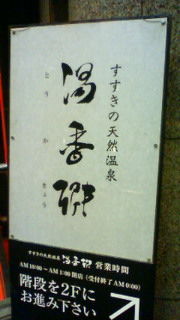 すすきの天然温泉
湯香郷
とうかきょう
すすきの天然温泉 湯香郷 営業時間
AM 10:00 〜 AM 1:00 閉店 (受付終了 AM 0:00)
階段を2Fに
お進み下さい